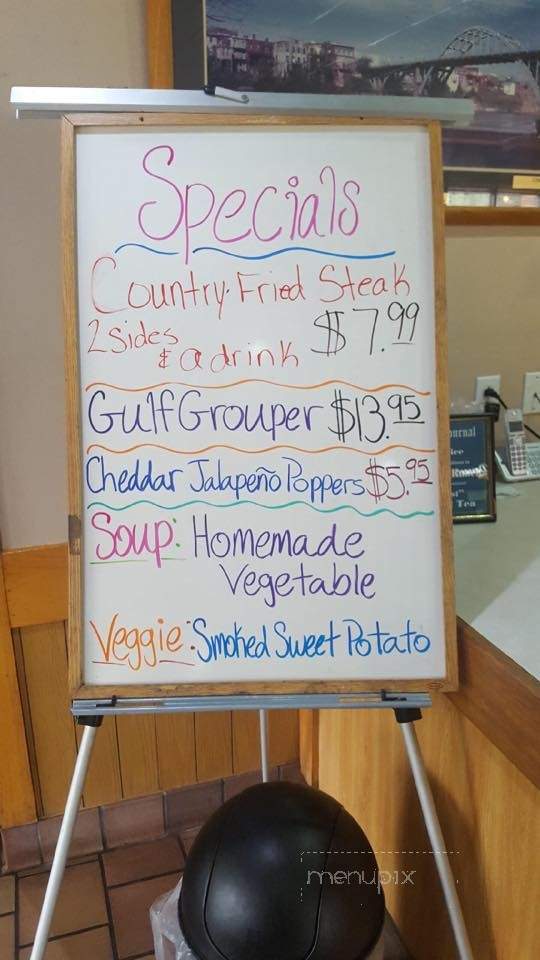 Specials
Country Fried Steak
2 sides & a drink $7.99
Gulf Grouper $13.95
Cheddar Jalapeño Poppers $5.95
Soup: Homemade
Vegetable
Veggie: Smoked Sweet Potato
Tea
menupix